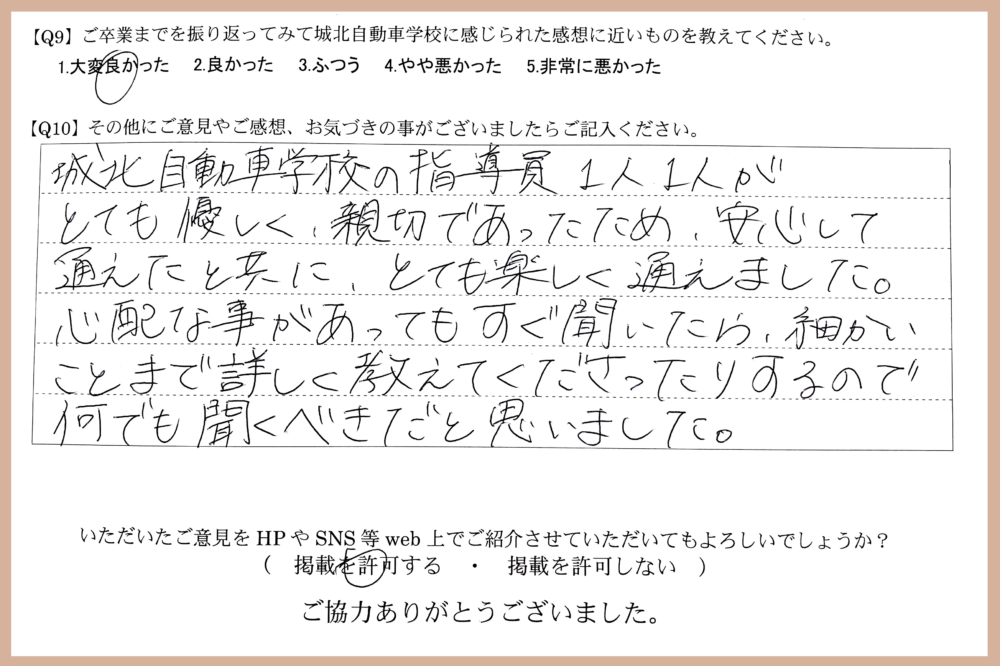 【Q9】ご卒業までを振り返ってみて城北自動車学校に感じられた感想に近いものを教えてください。
1.大変良かった 2.良かった 3.ふつう 4.やや悪かった 5.非常に悪かった
【Q10】その他にご意見やご感想、お気づきの事がございましたらご記入ください。
城北自動車学校の指導員 1人1人が
とても優しく、親切であったため、安心して
通えたと共に、とても楽しく通えました。
心配な事があってもすぐ聞いたら、細かい
ことまで詳しく教えてくださったりするので
何でも聞くべきだと思いました。
いただいたご意見をHPやSNS等web上でご紹介させていただいてもよろしいでしょうか?
( 掲載を許可する ・ 掲載を許可しない )
ご協力ありがとうございました。